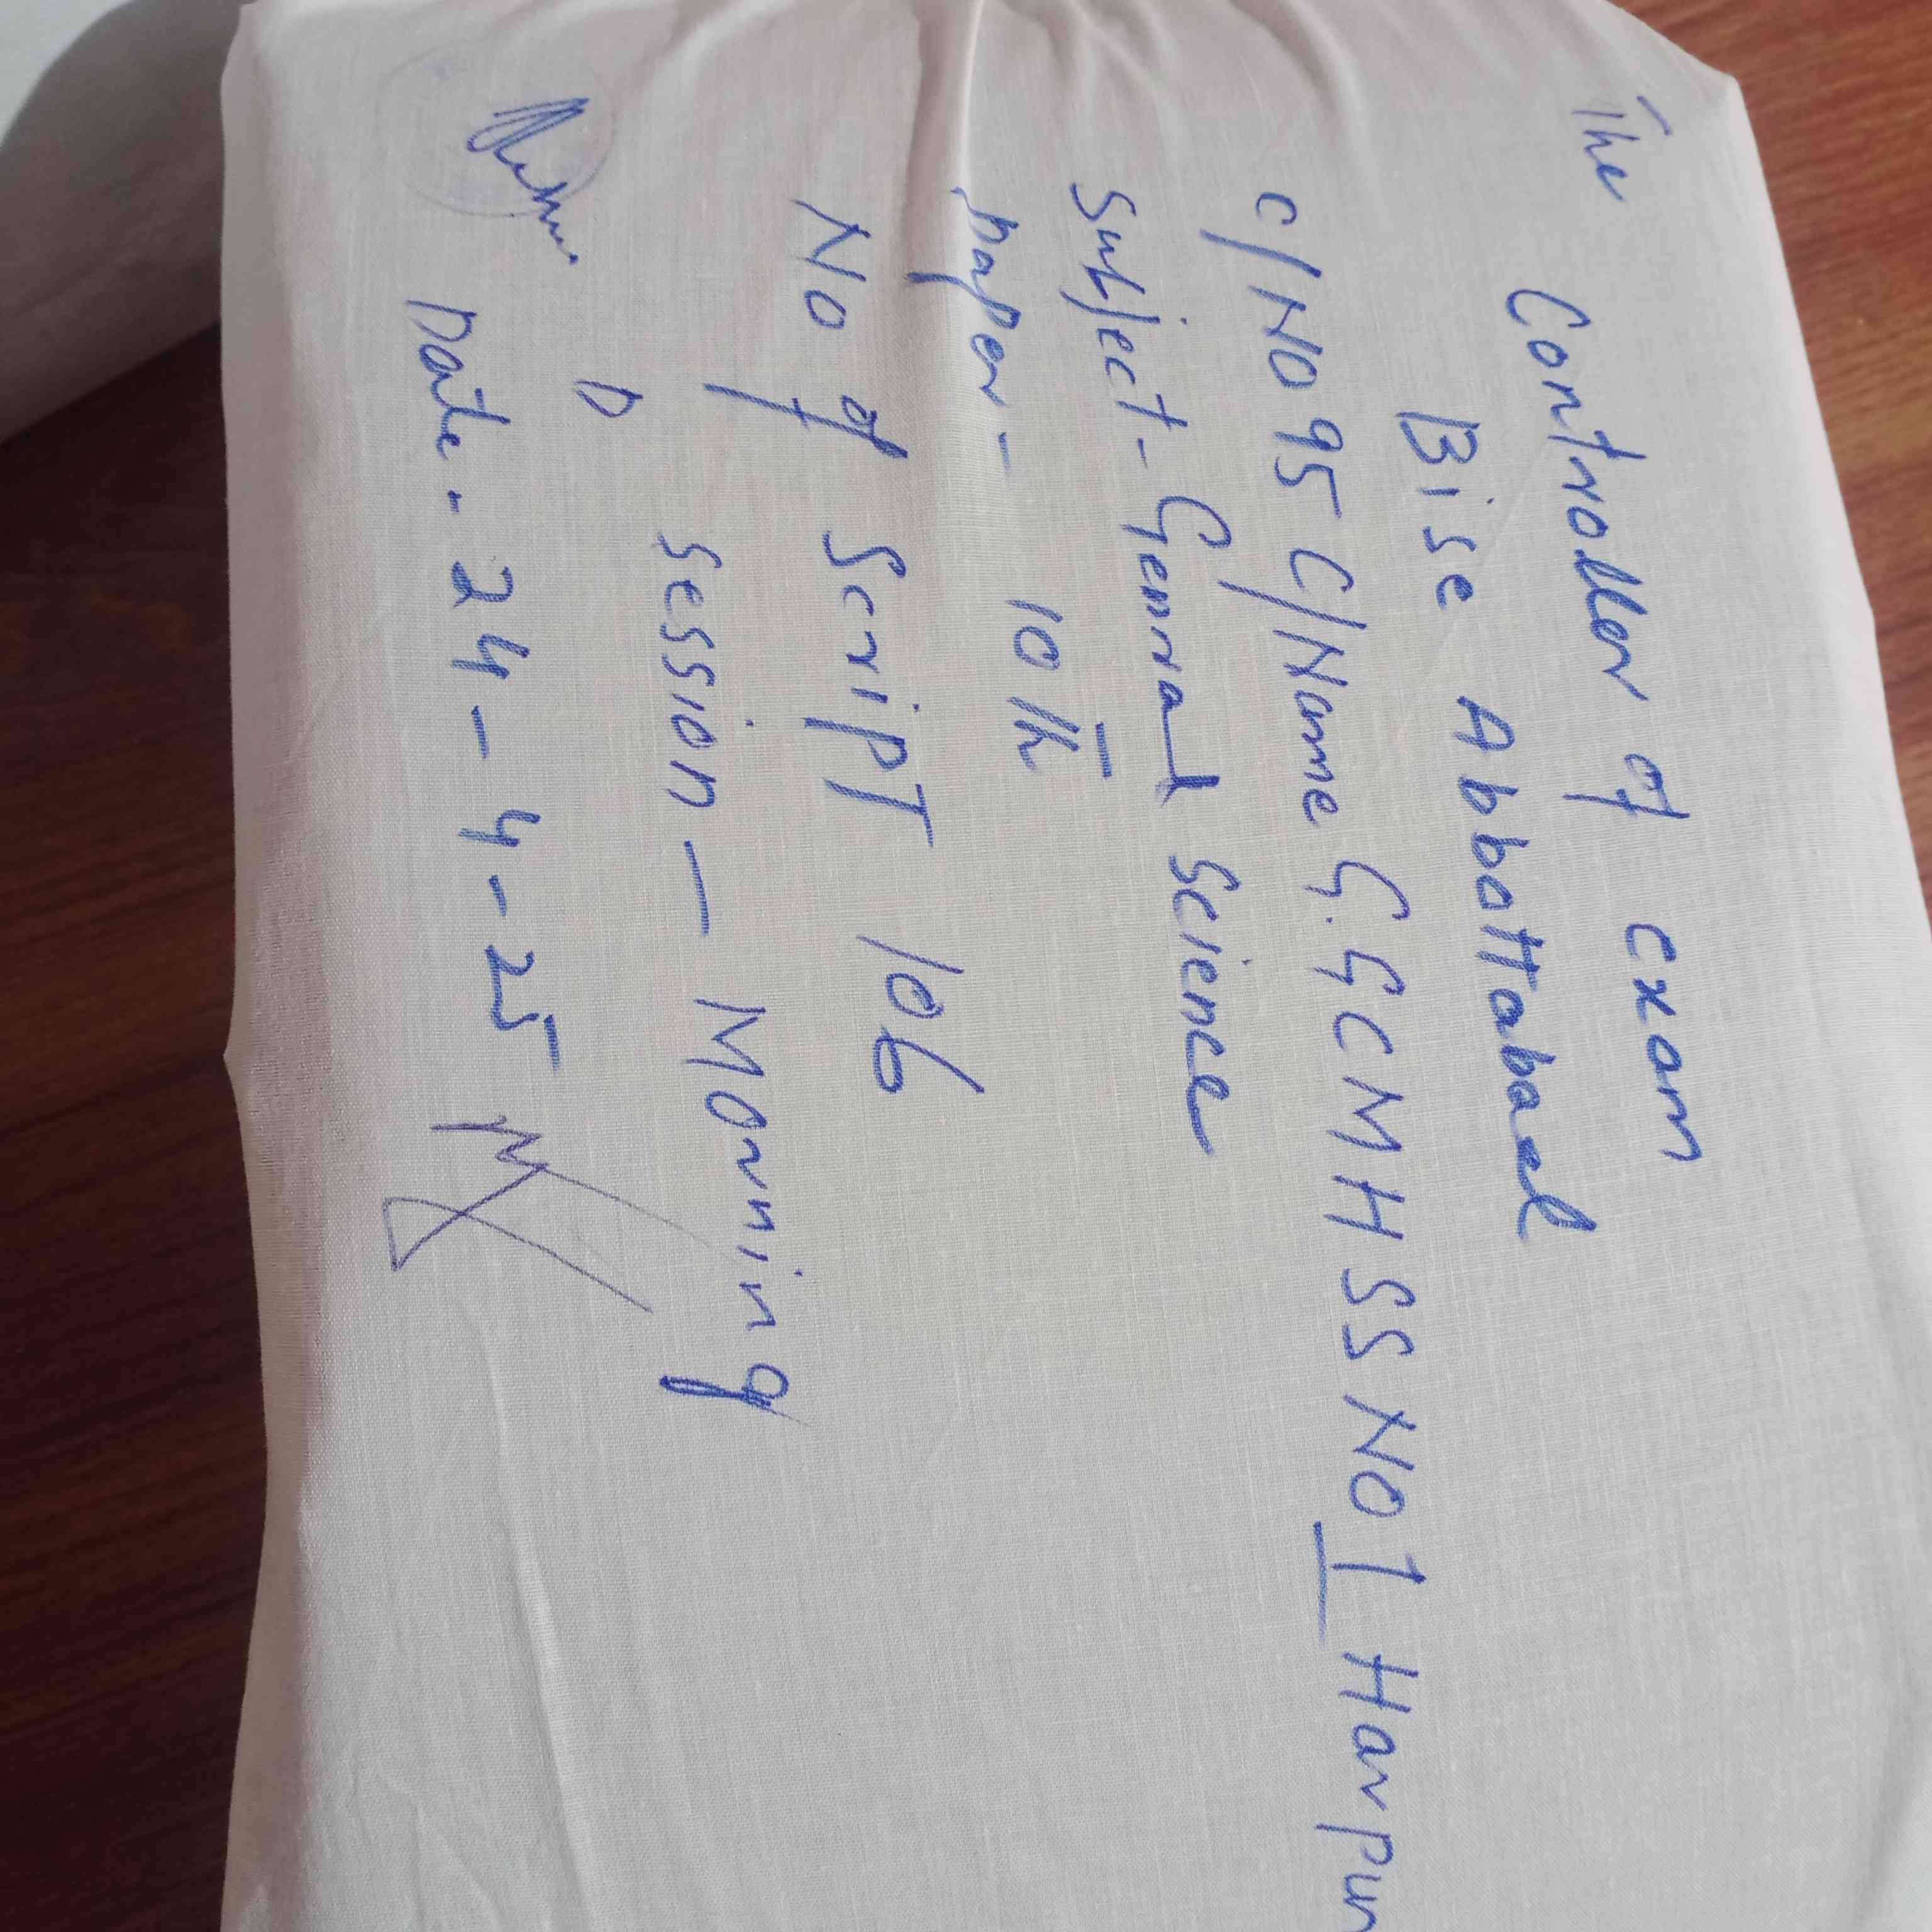 The
Controller of exam
Bise Abbottabad
C/No 95 C/Name G.GCMHSS NO 1 Haripur
Subject - Genral Science
paper - 10th
No of Script 106
Session - Morning
D
Date - 24-4-25